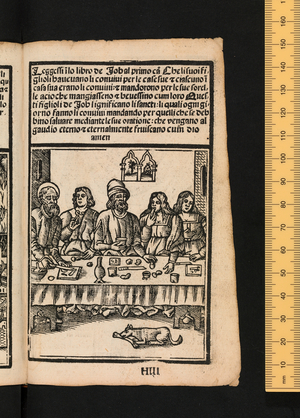 Leggessi ĩlo libro de Iob al primo cã. Che li suoi fi
glioli haueuano li conuiui per le case sue & ciascuno ĩ
casa sua erano li conuiui: & mandorono per le sue sorel
le acio che mangiasseno & beuesseno cum loro Ques
ti figlioli de Iob significano li sancti: li quali ogni gi
orno fanno li conuiui mandando per quelli che se deb
bino saluare mediante le sue oratione: che vengano al
gaudio eterno & eternalmente fruiscano cum dio
amen